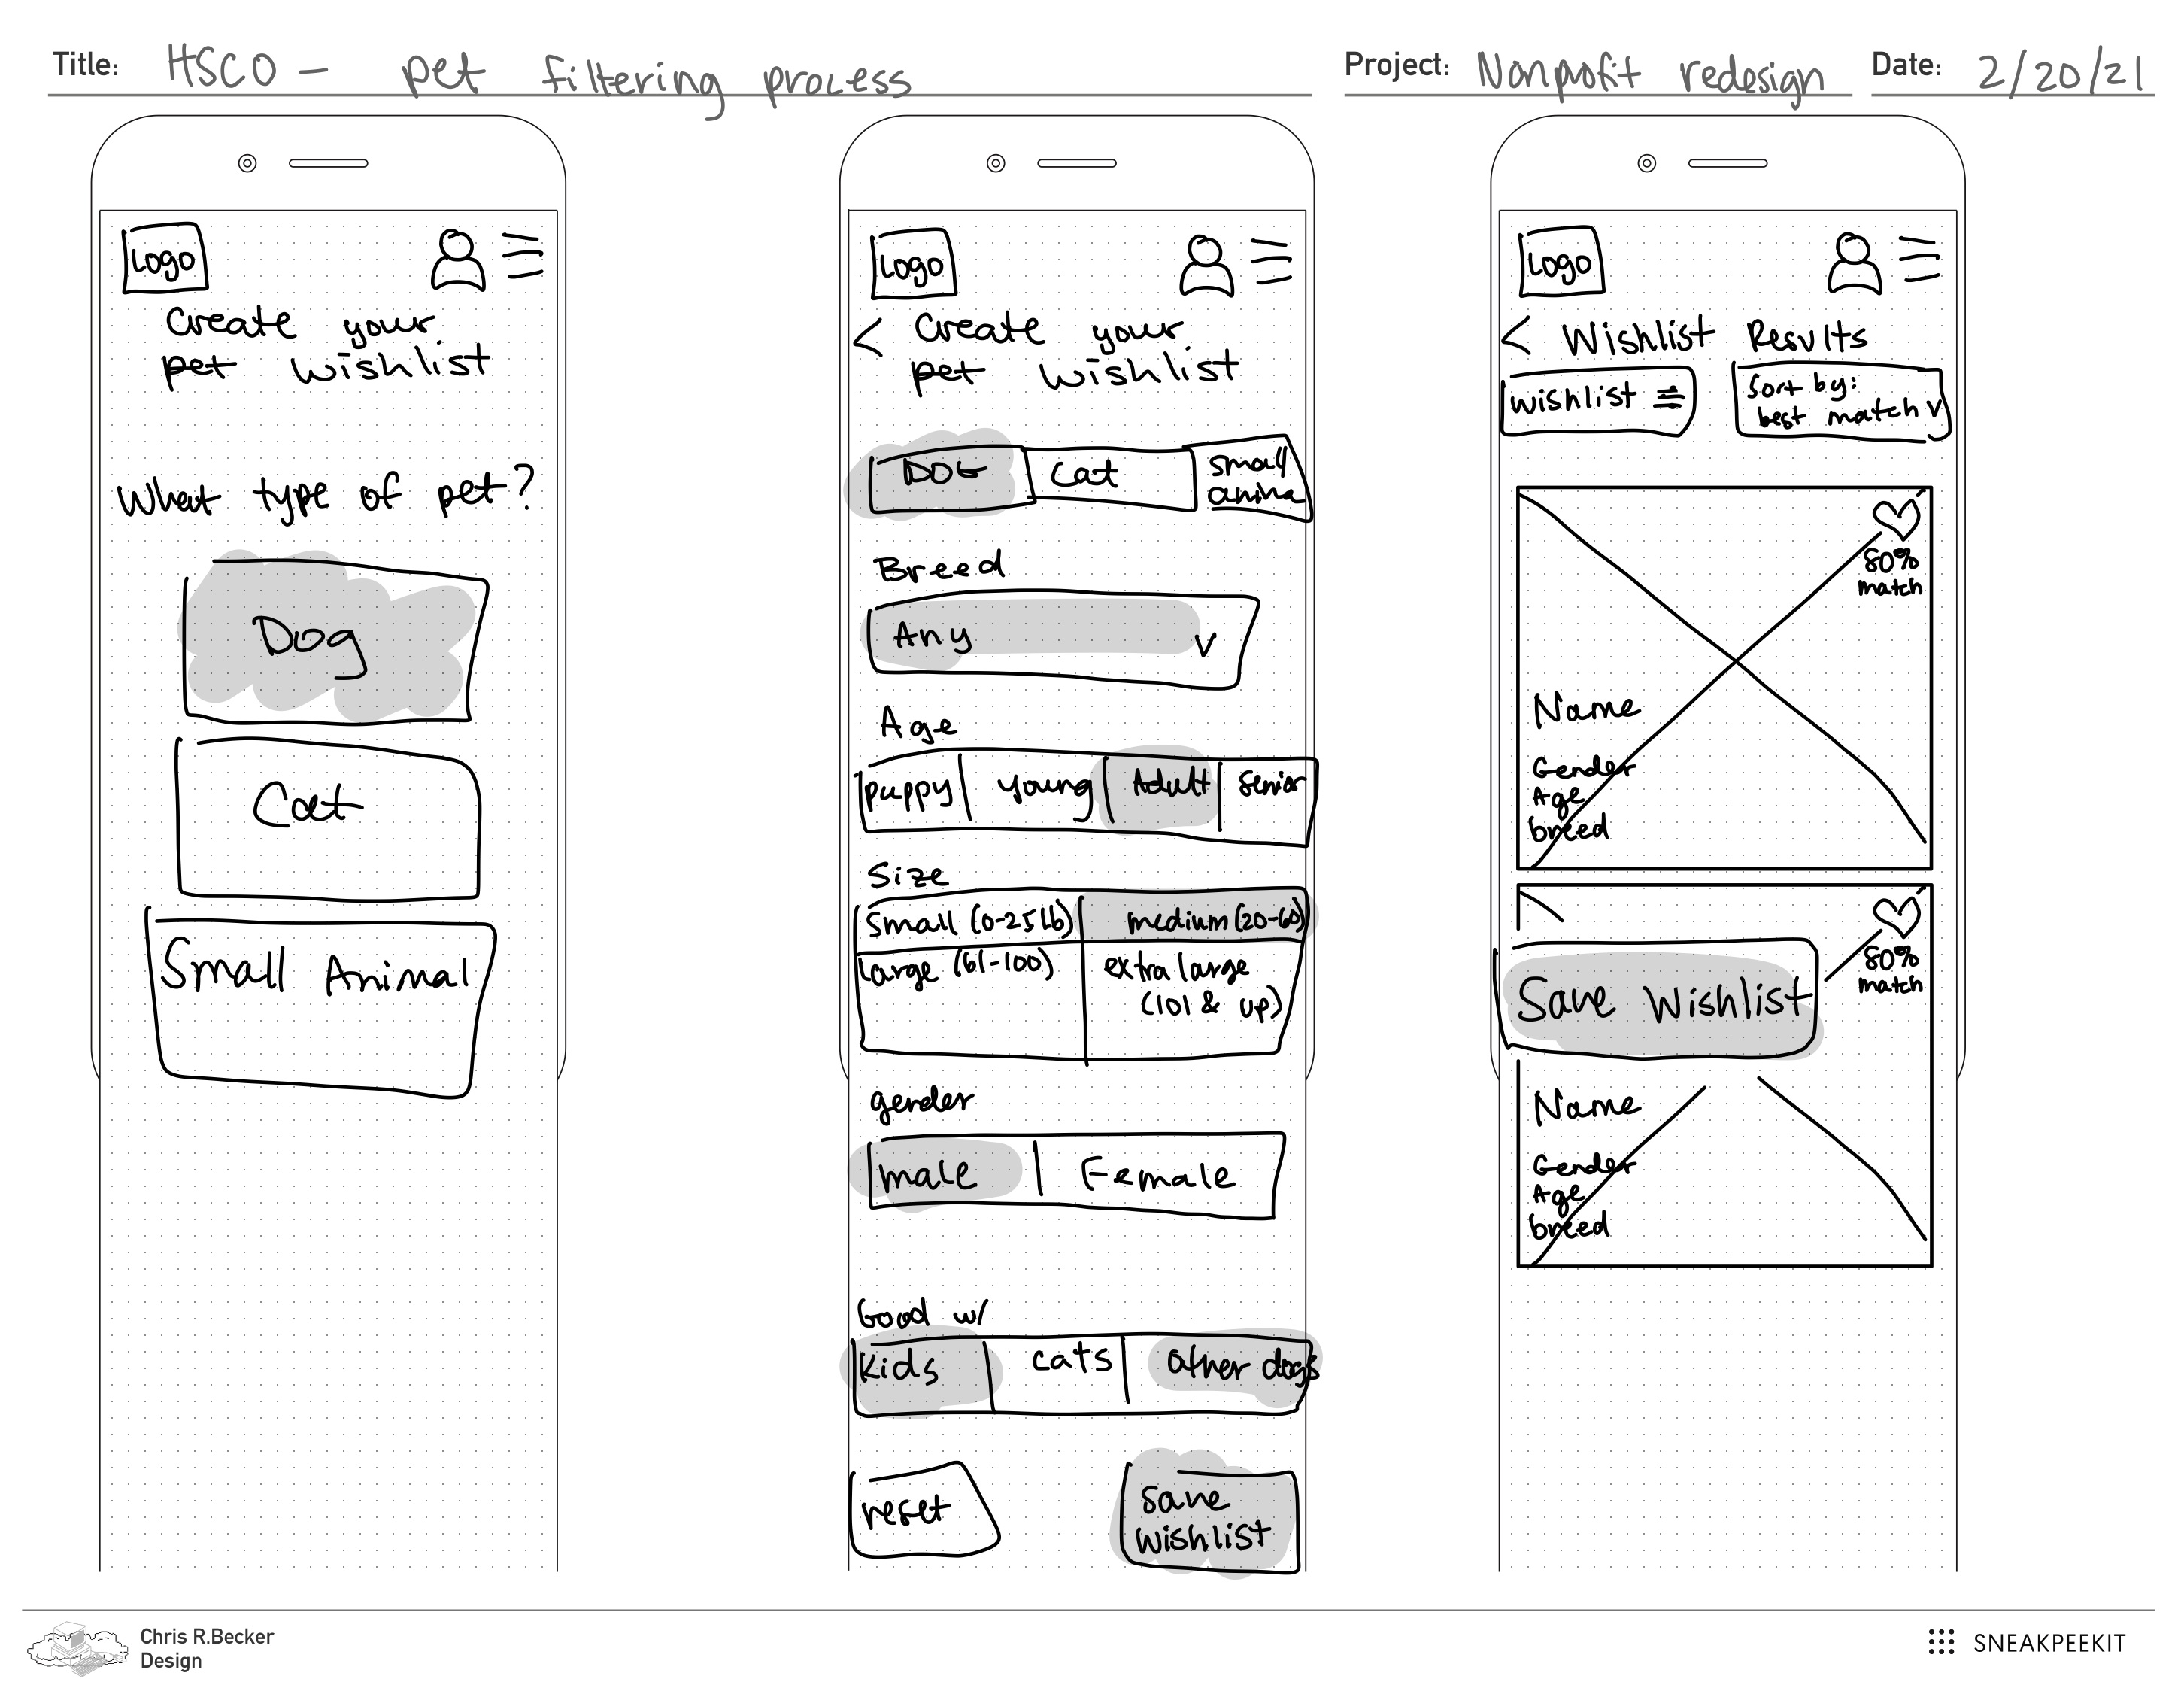 Title: HSCO - pet filtering process
Project: Nonprofit redesign
Date: 2/20/21
Logo
Create your
pet wishlist
What type of pet?
Dog
Cat
Small Animal
Logo
< Create your
pet wishlist
DOG
Cat
small
anima
Breed
Any
Age
puppy
young
Adult
senior
Size
small (0-25 lb)
medium (20-60)
large (61-100)
extra large
(101 & up)
gender
male
Female
Good w/
Kids
cats
other dogs
reset
save
wishlist
Logo
< Wishlist Results
wishlist
Sort by:
best match
80%
match
Name
Gender
Age
breed
80%
match
Save Wishlist
Name
Gender
Age
breed
Chris R.Becker
Design
SNEAKPEEKIT